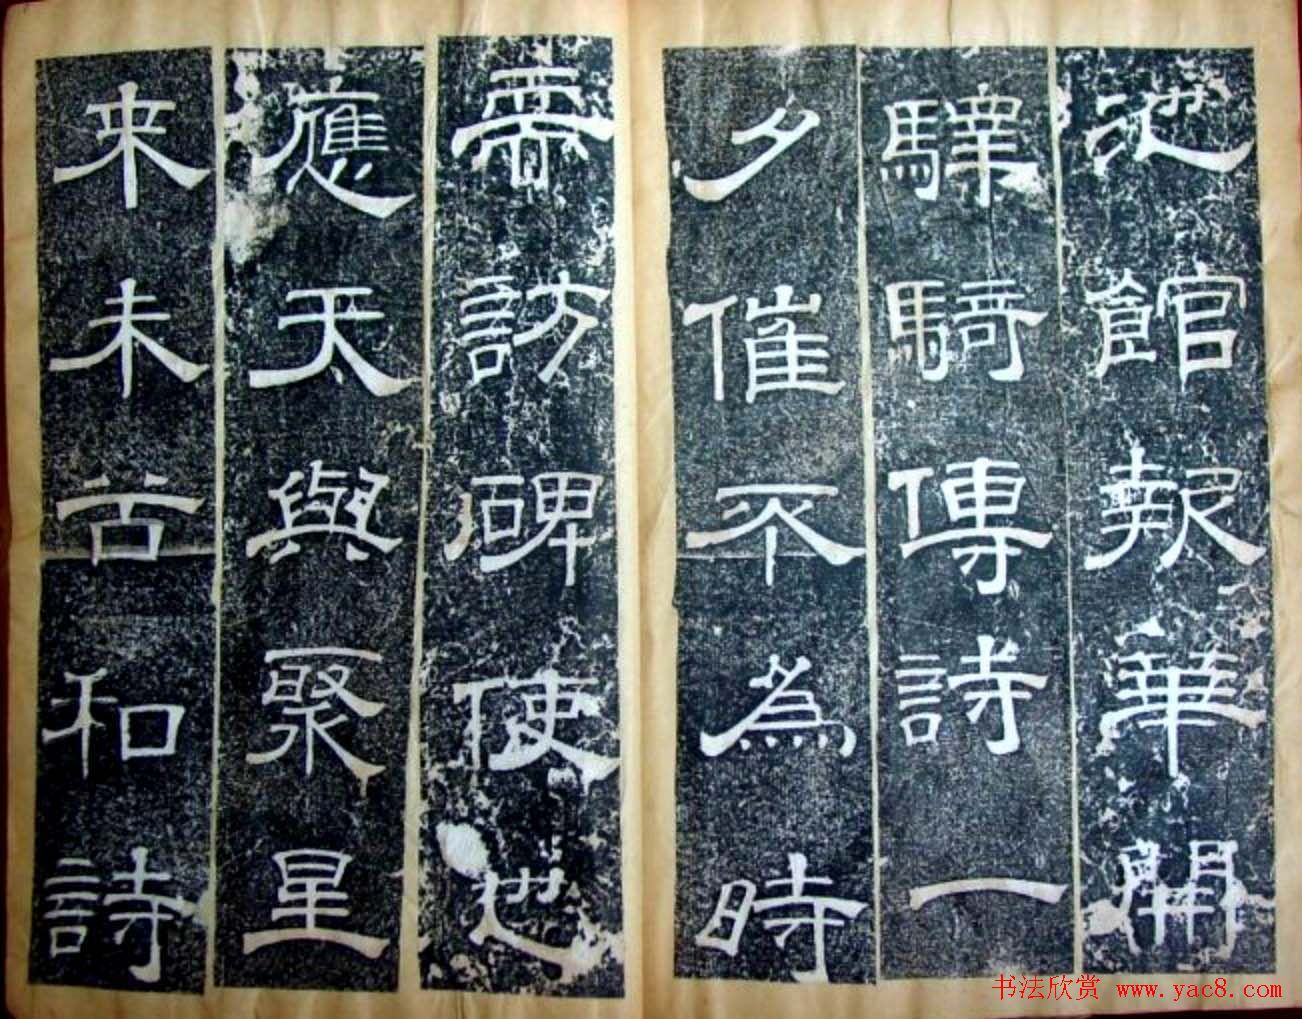 池館報華開
驛騎傳詩一
夕催不為時
需訪碑使也
應天與聚星
来未苦和詩
书法欣赏 www.yac8.com